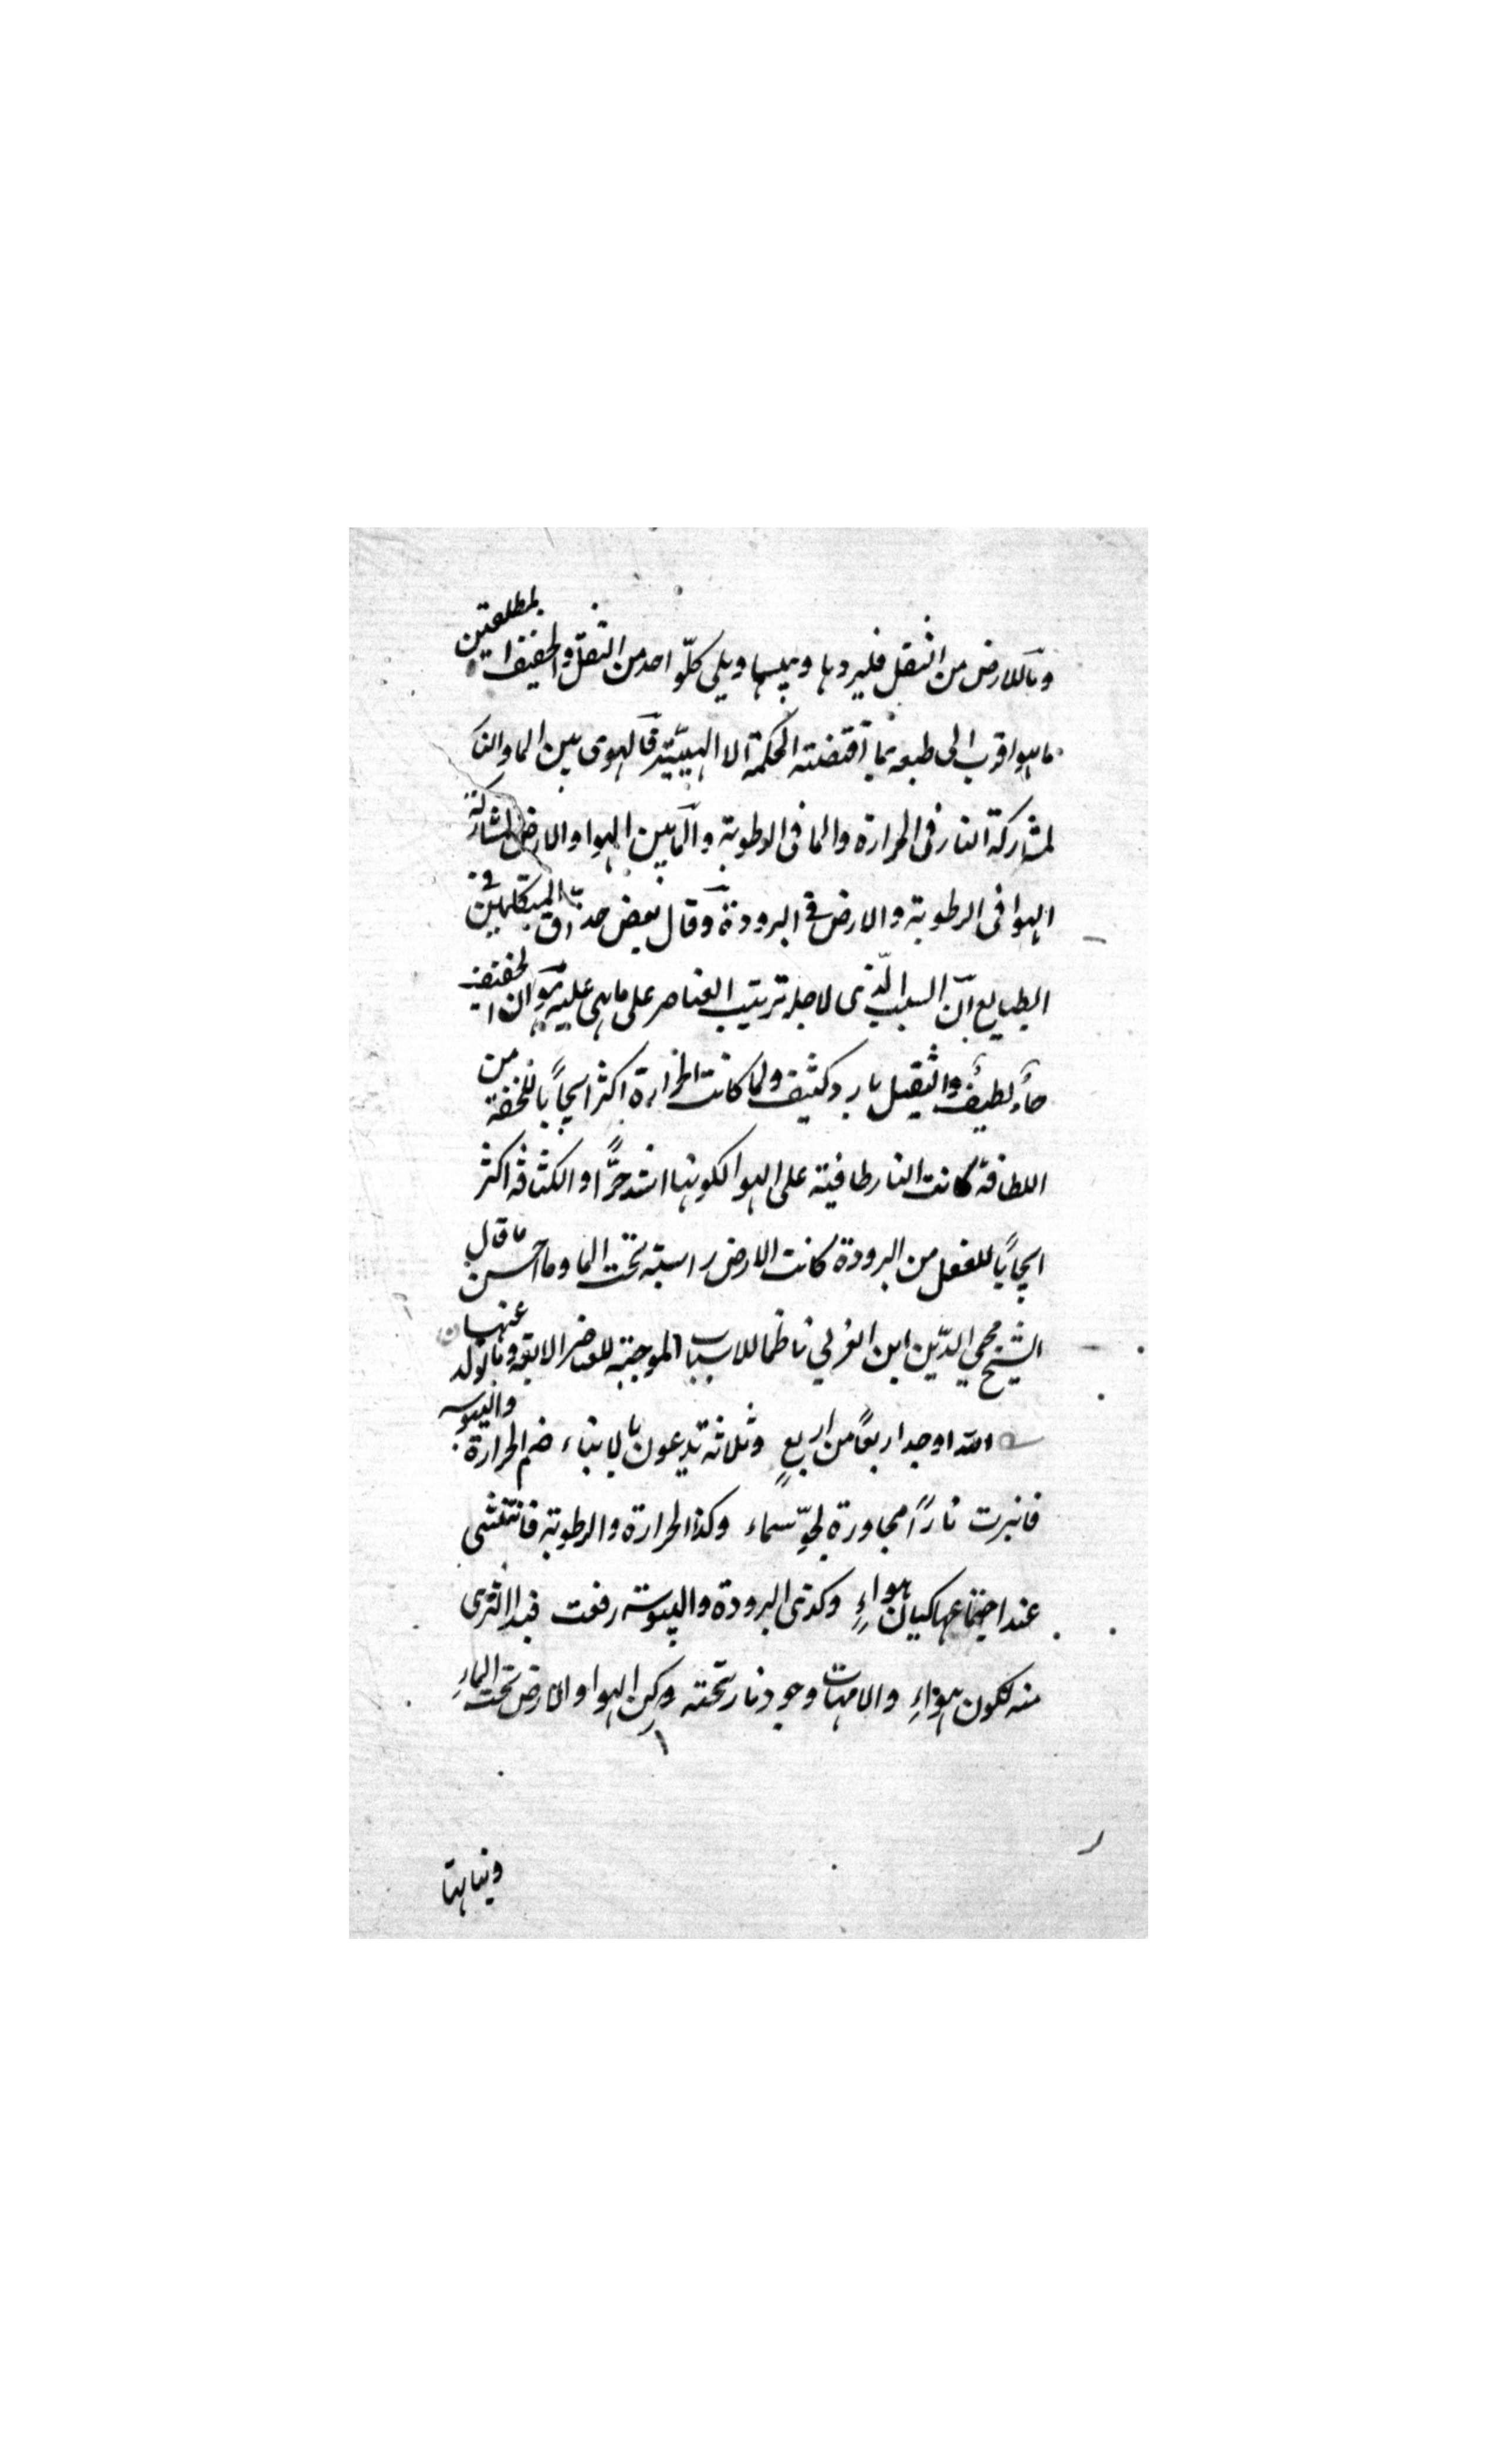 وماللارض من الثقل فلبردها ويبسها ويلي كلّواحد من الثقل والخفيف المطلقين
ما هو اقرب الى طبعه بما اقتضته الحكمة الا الهيّية فالهوى بين الما والنار
لمشاركة النار فى الحرارة والما فى الرطوبة والما بين الهوا والارض لمشاركة
الهوا فى الرطوبة والارض فى البرودة وقال بعض حذاق المتكلمين فى
الطبايع انّ السبب الّذى لاجله ترتيب العناصر على ماهى عليه هو ان الخفيف
حاد لطيف والثقيل بارد كثيف ولما كانت الحرارة اكثر ايجاباً للخفة من
اللطافة كانت النار طافية على الهوا لكونها اشد حرًّا والكثافه اكثر
ايجاباً للثقل من البرودة كانت الارض راسبة تحت الما وما احسن ما قال
الشيخ محمي الدّين ابن العربي ناظما للاسباب الموجبة للعناصر الاربعة وما تولد عنها
الله اوجد اربعًا من اربعٍ وثلاثه تدعون بالابناء ضم الحرارة واليبوسه
فانبرت نارًا مجاورة لجوّ سماء وكذا الحرارة والرطوبة فانتشى
عند اجتماعها كيان هواءٍ وكذى البرودة واليبوسة رفعت فبدا الثرى
منه لكون هواءِ والامهات وجود نار تحته ركن الهوا والارض تحت الماءِ
ونباهتا